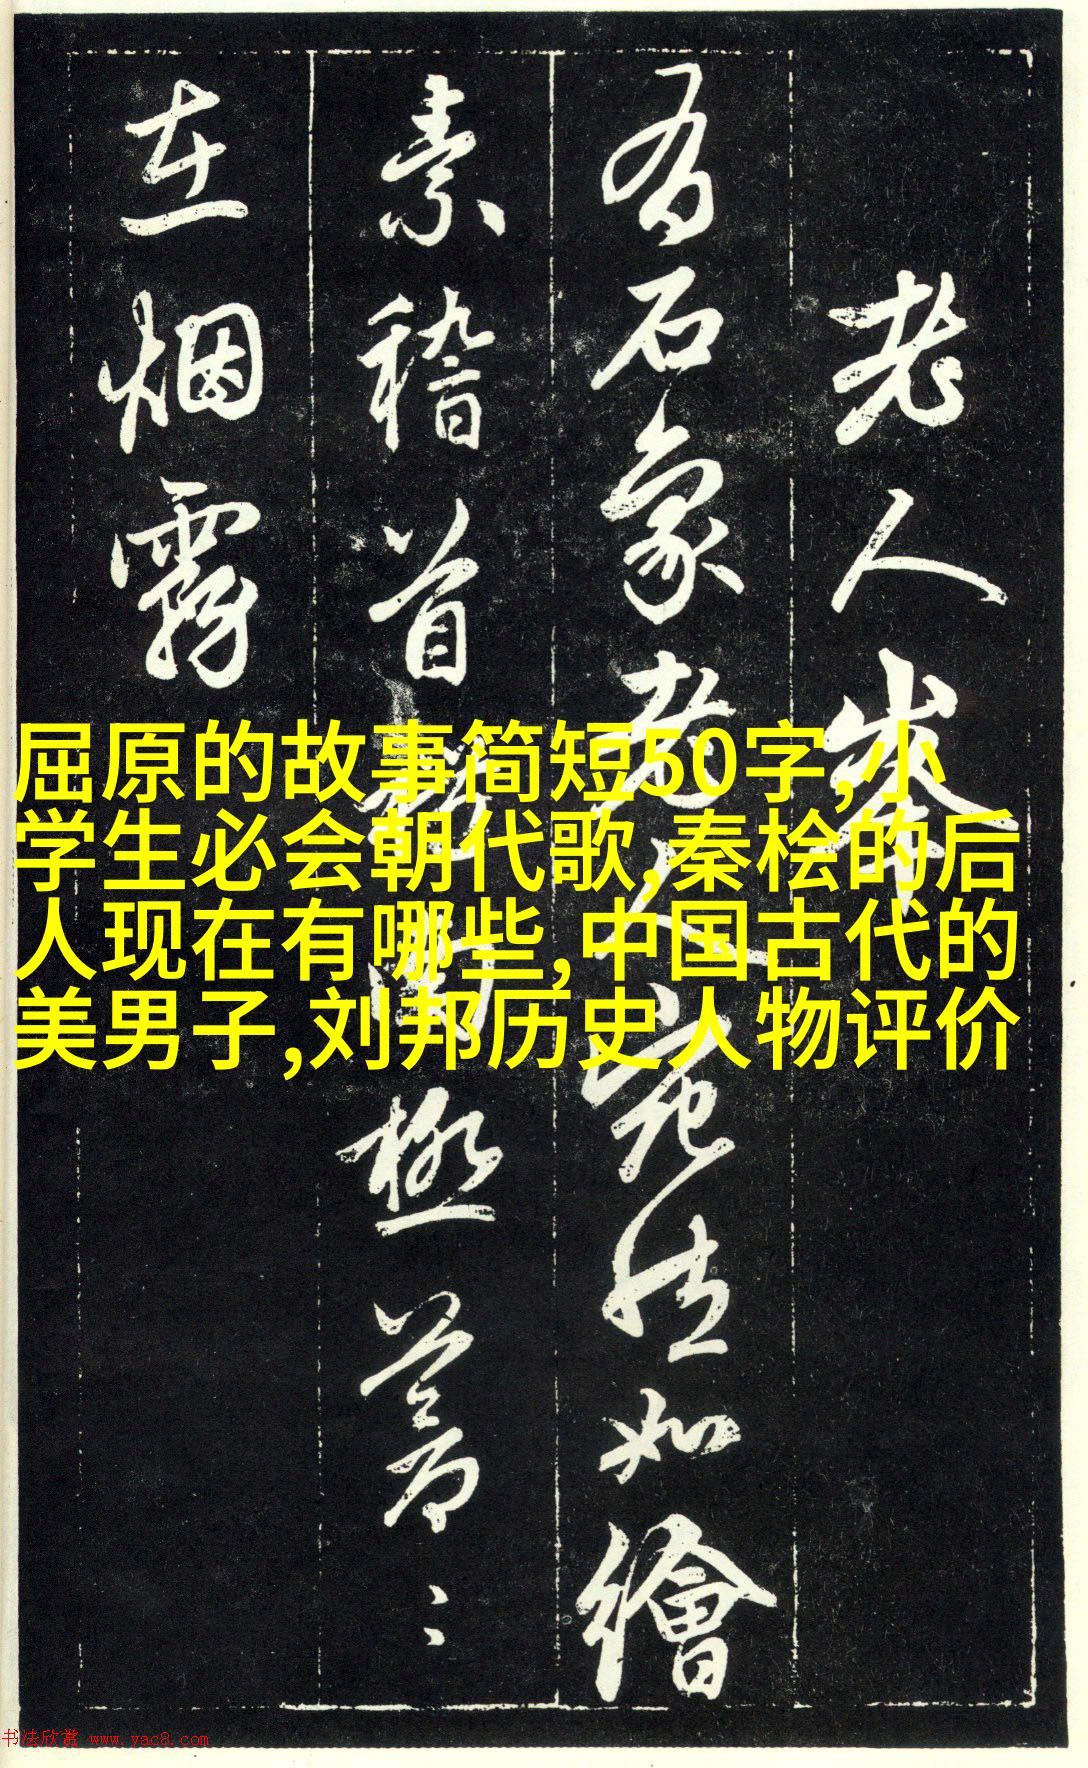 老人峯
有石象老人宛然如繪
素稽首南極蒼〻
在烟霧
屈原的故事简短50字,小
学生必会朝代歌,秦桧的后
人现在有哪些,中国古代的
美男子,刘邦历史人物评价
书法欣赏 www.yac8.com